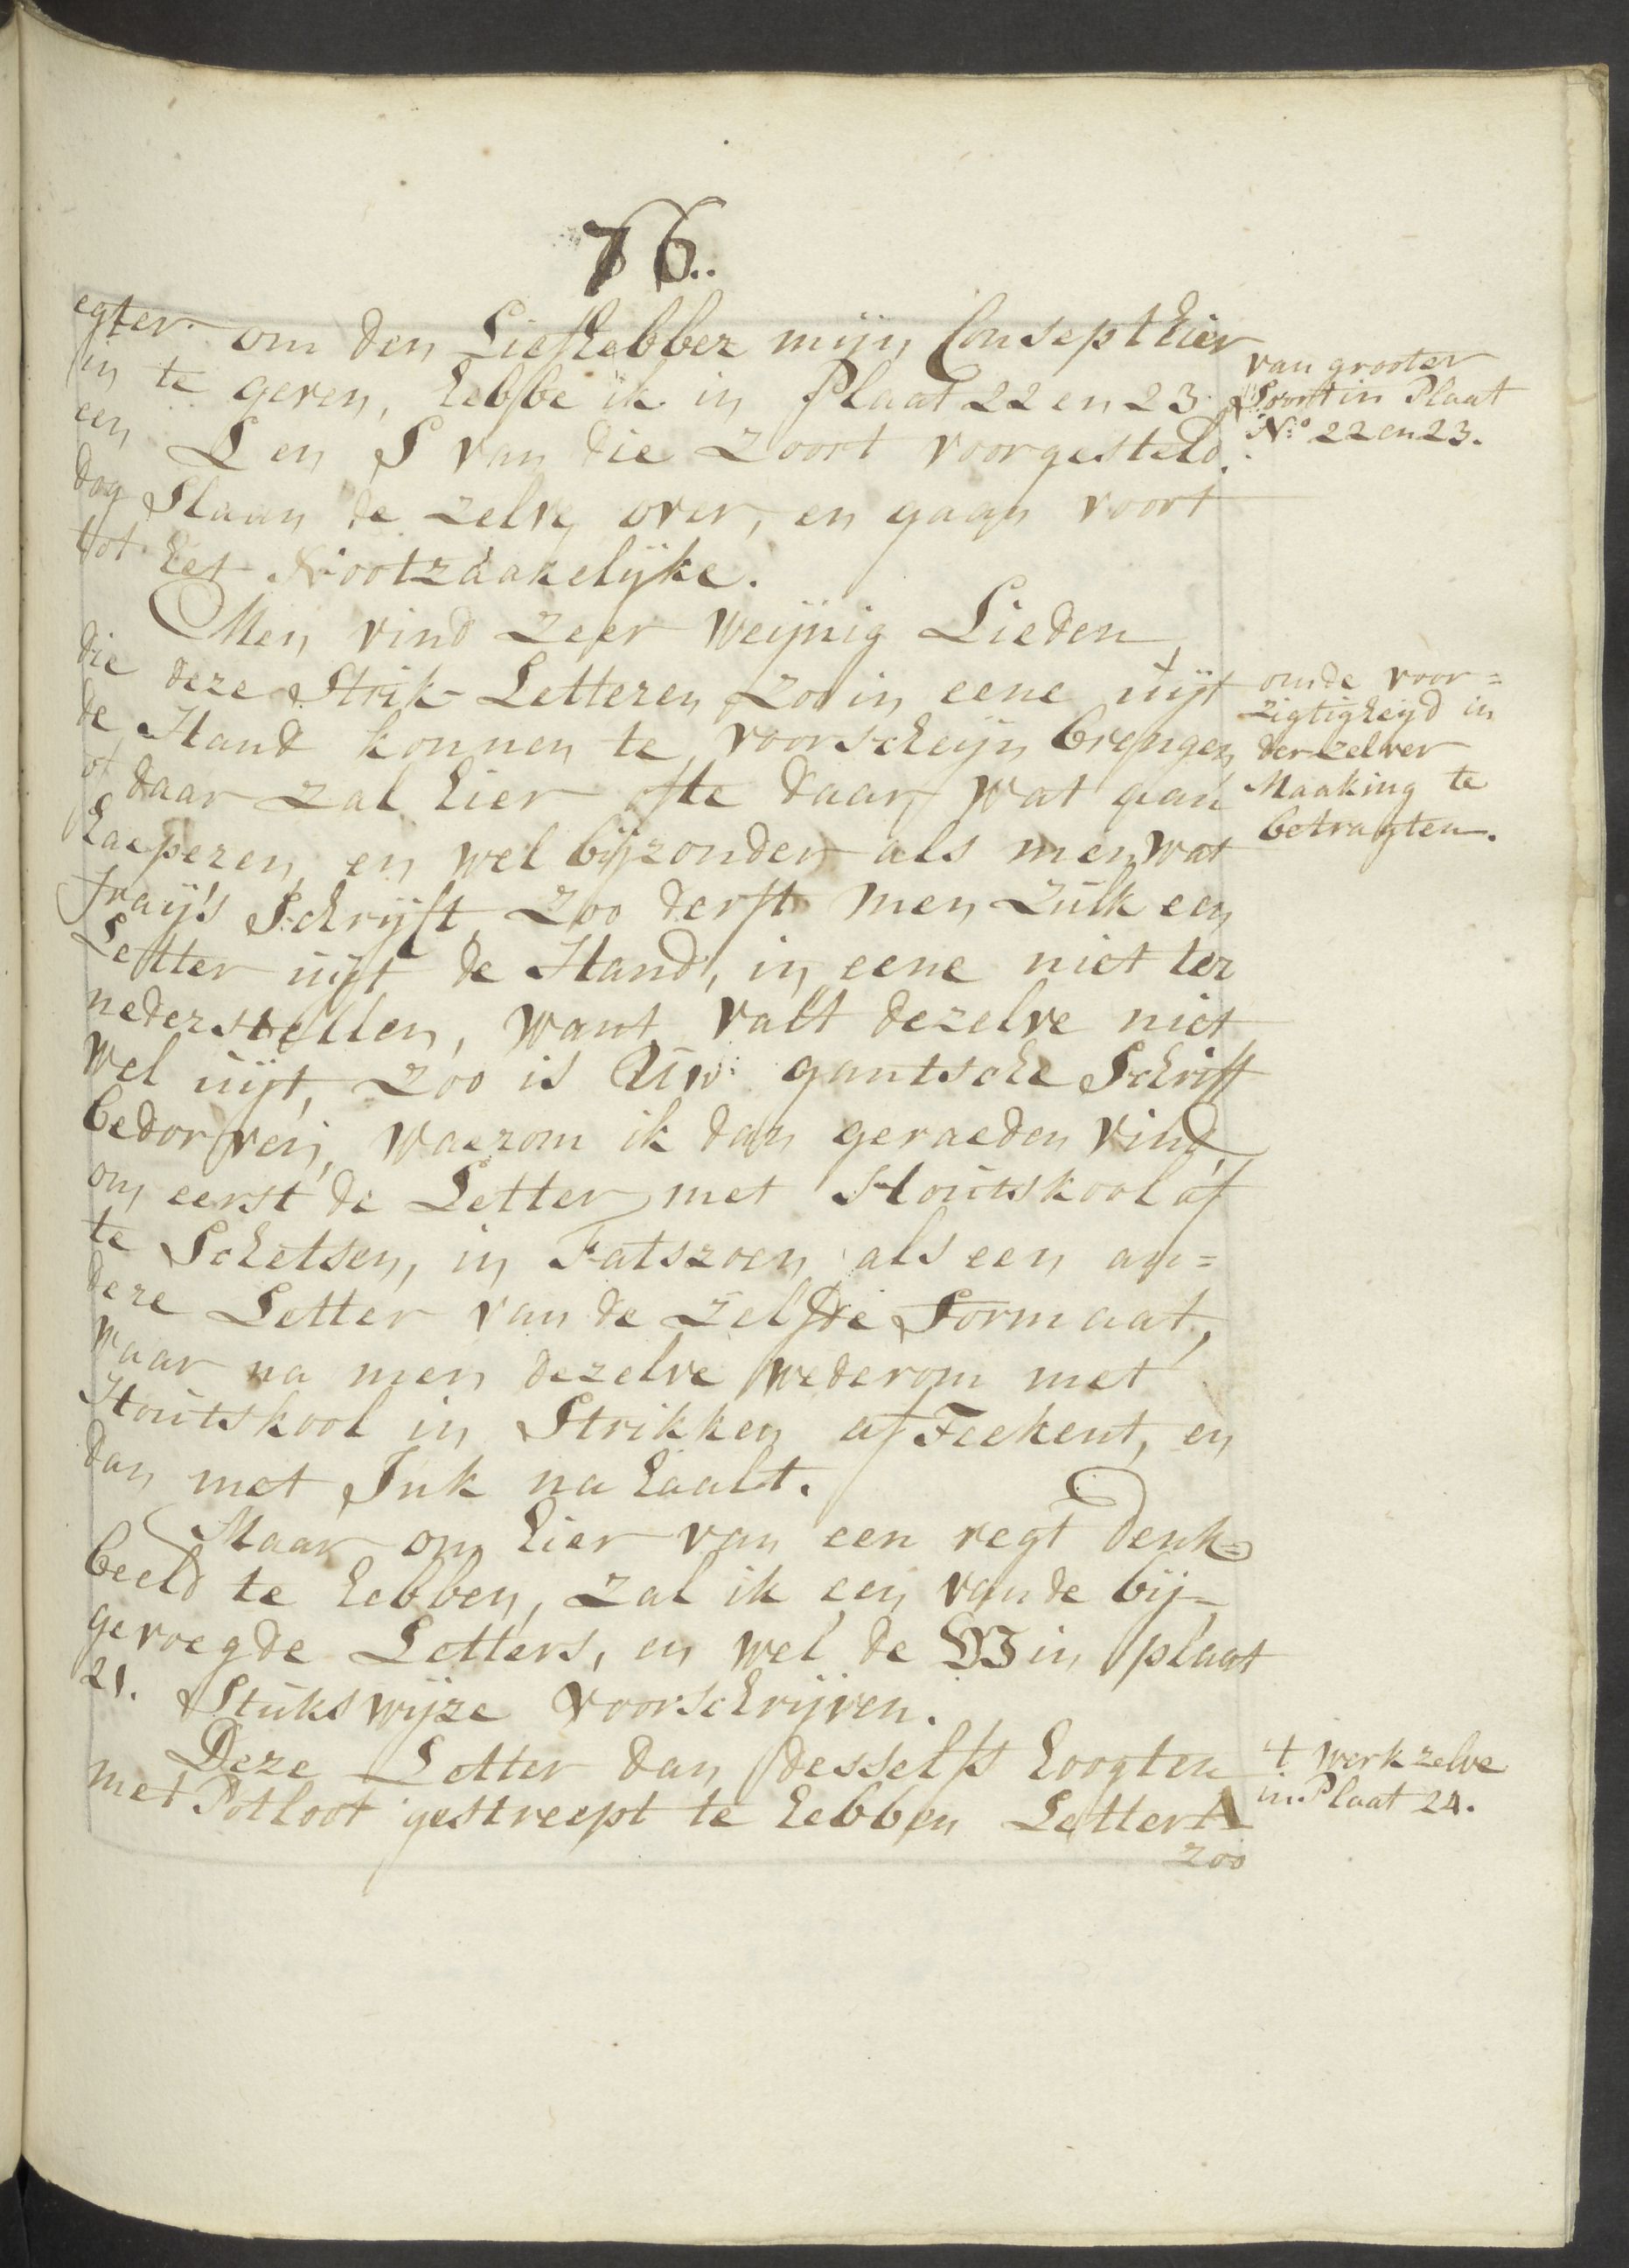 76..
egter om den Liefhebber mijn Consept hier
in te geven, hebbe ik in Plaat 22 en 23
een L en S van die zoort voorgesteld.
dog slaan de zelve over, en gaan voort
tot het Nootzaakelijke.
van grooter
Soort in Plaat
N:o 22 en 23.
Men vind zeer weijnig Lieden,
die deze Strik-Letteren zoo in eene uijt
de Hand konnen te voorscheijn brengen,
of daar zal hier ofte daar wat aan
haeperen, en wel bijzonder als men wat
fraij's Schrijft, zoo derft men zulk een
Letter uijt de Hand, in eene niet ter
nederstellen, want valt dezelve niet
wel uijt, zoo is Uw: gantsche Schrift
bedorven, waerom ik dan geraeden vind,
om eerst de Letter met Houtskool af
te Schetsen, in Fatszoen als een an=
dere Letter van de zelfde Formaat,
waar na men dezelve wederom met
Houtskool in Strikken af Teekent, en
dan met Ink na haalt.
om de voor=
zigtigheijd in
der zelver
Maaking te
betragten.
Maar om hier van een regt denk=
beeld te hebben, zal ik een van de bij-
gevoegde Letters, en wel de W in plaat
21. Stukswijze voorschrijven.
Deze Letter dan desselfs hoogten
met Potloot gestreept te hebben Letter A
zoo
't werk zelve
in Plaat 24.